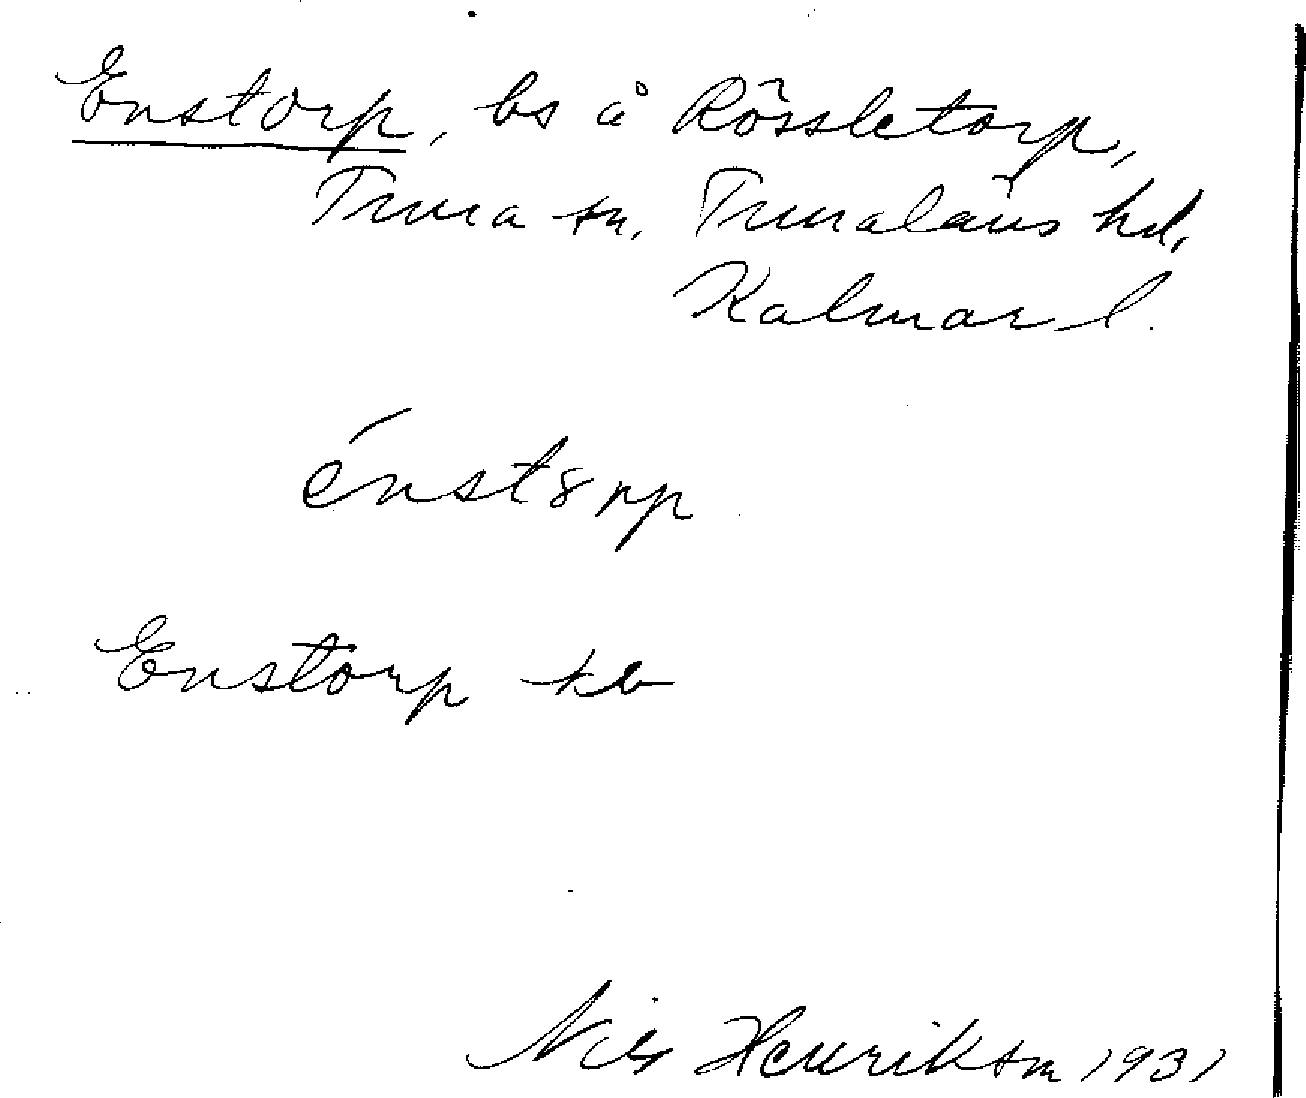 Enstorp, bs å Rössletorp,
Tuna sn. Tunaläns hd,
Kalmar l.
énst8rp
Enstorp kb
Nils Henrikson 1931